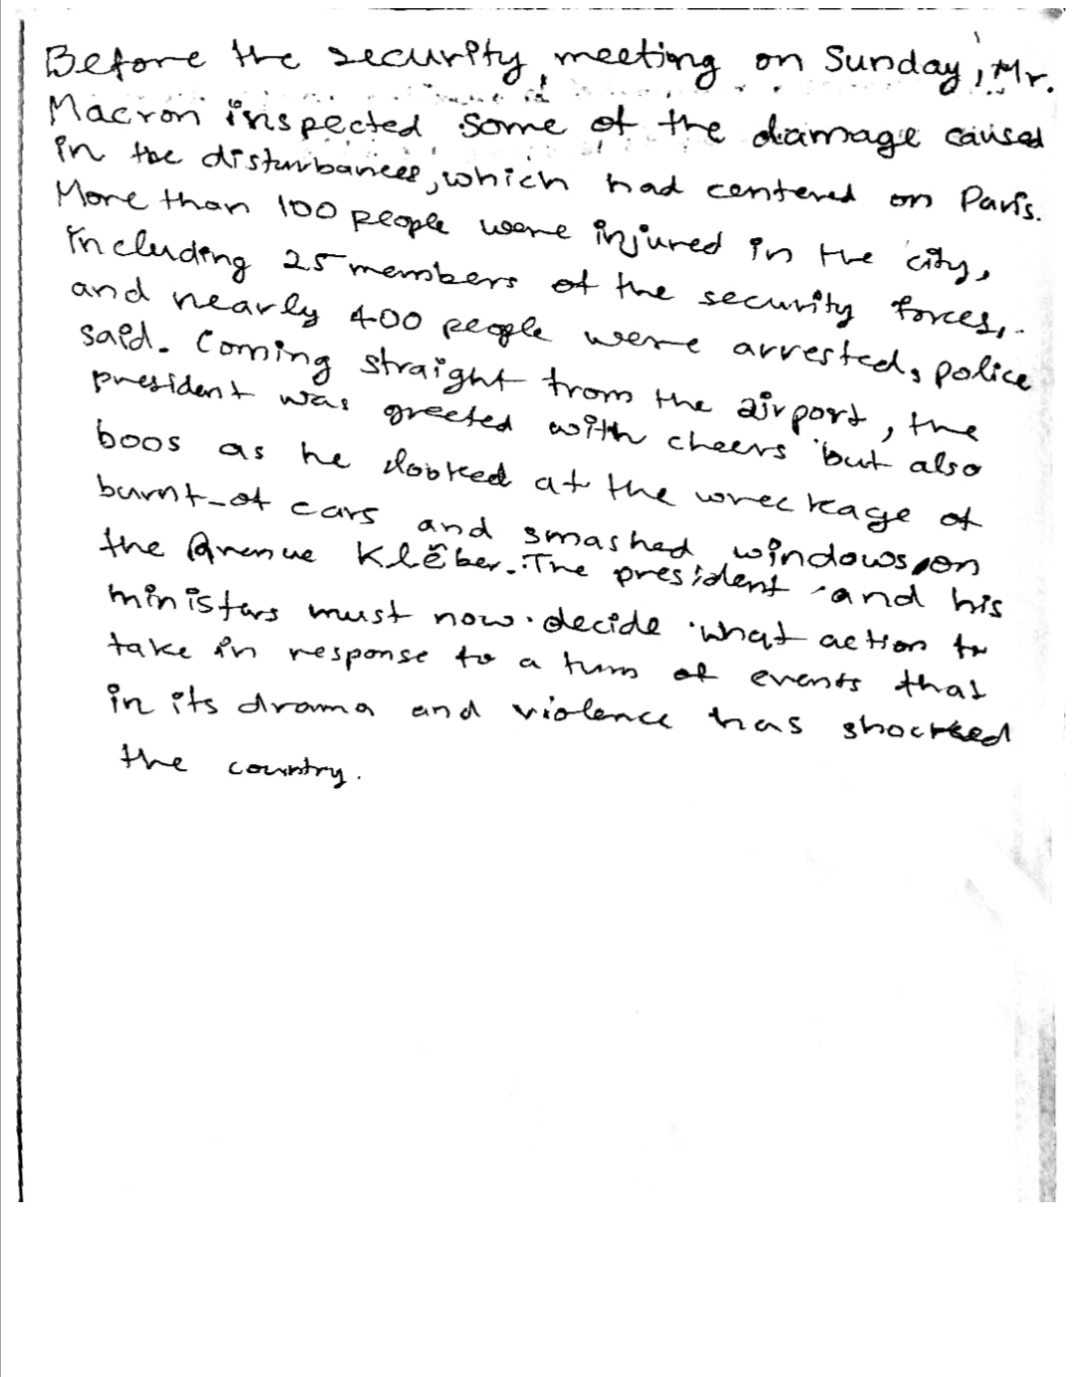 Before the security meeting on Sunday, Mr.
Macron inspected some of the damage caused
in the disturbances, which had centered on Paris.
More than 100 people were injured in the city,
including 25 members of the security forces,
and nearly 400 people were arrested, police
said. Coming straight from the airport, the
president was greeted with cheers but also
boos as he looked at the wreckage of
burnt-of cars and smashed windows on
the Avenue Klěber. The president and his
ministers must now decide what action to
take in response to a turn of events that
in its drama and violence has shocked
the country.